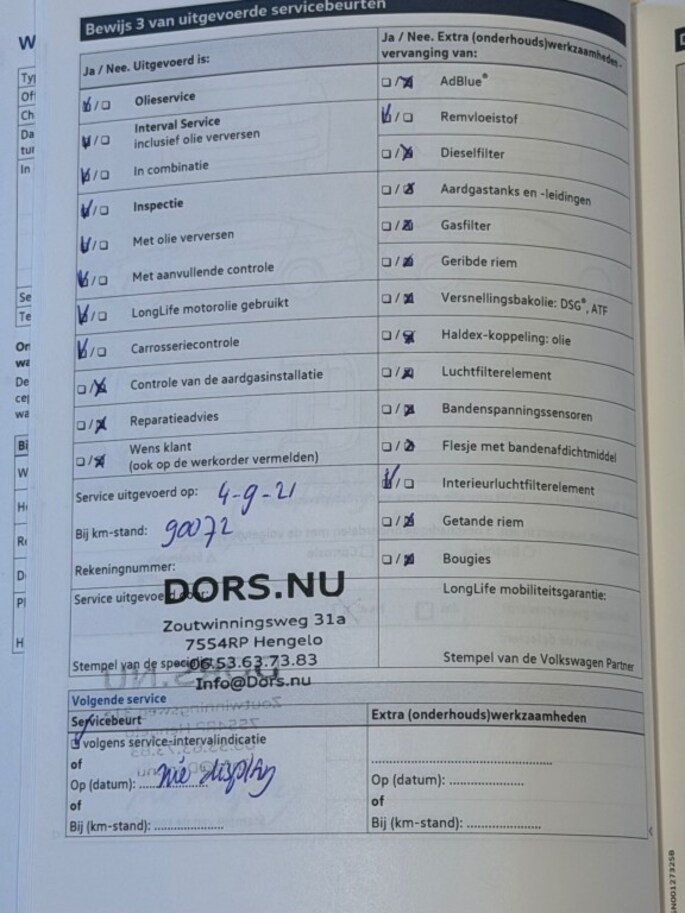 Bewijs 3 van uitgevoerde servicebeurten
Ja / Nee. Uitgevoerd is:
Olieservice
Interval Service
inclusief olie verversen
In combinatie
Inspectie
Met olie verversen
Met aanvullende controle
LongLife motorolie gebruikt
Carrosseriecontrole
Controle van de aardgasinstallatie
Reparatieadvies
Wens klant
(ook op de werkorder vermelden)
Service uitgevoerd op: 4-9-21
Bij km-stand: 90072
Rekeningnummer:
Service uitgevoerd door:
DORS.NU
Zoutwinningsweg 31a
7554RP Hengelo
06.53.63.73.83
Info@Dors.nu
Stempel van de specialist
Ja / Nee. Extra (onderhouds)werkzaamheden -
vervanging van:
AdBlue®
Remvloeistof
Dieselfilter
Aardgastanks en -leidingen
Gasfilter
Geribde riem
Versnellingsbakolie: DSG®, ATF
Haldex-koppeling: olie
Luchtfilterelement
Bandenspanningssensoren
Flesje met bandenafdichtmiddel
Interieurluchtfilterelement
Getande riem
Bougies
LongLife mobiliteitsgarantie:
Stempel van de Volkswagen Partner
Volgende service
Servicebeurt
volgens service-intervalindicatie
of
Op (datum): zie display
of
Bij (km-stand): ....................
Extra (onderhouds)werkzaamheden
Op (datum): ....................
of
Bij (km-stand): ....................